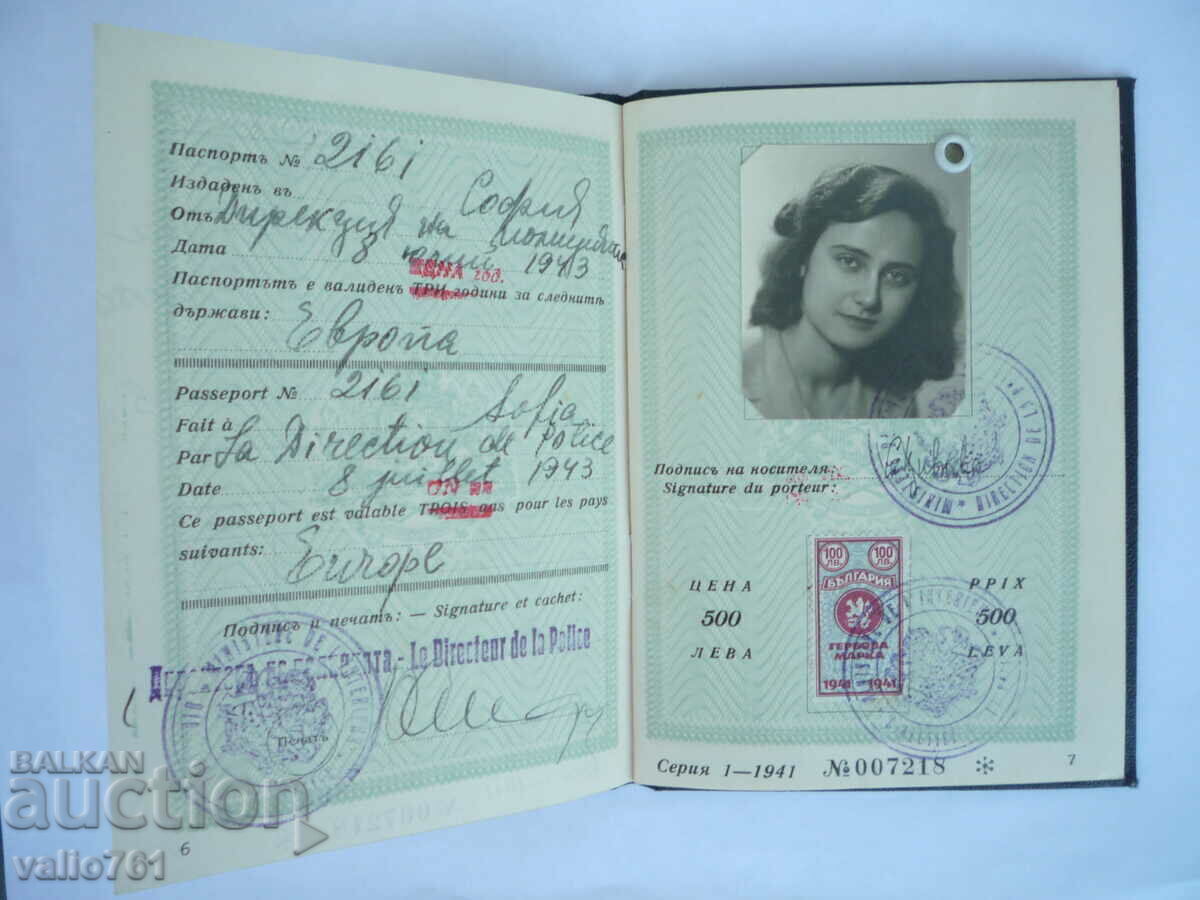 Паспортъ № 2161
Издаденъ въ София
Отъ Дирекция на полицията
Дата 8 юлий 1943
ЕДНА год.
Паспортътъ е валиденъ ТРИ години за следнитѣ
държави:
Европа
Passeport № 2161
Fait à Sofia
Par La Direction de Police
Date 8 juillet 1943
UN an
Ce passeport est valable TROIS ans pour les pays
suivants:
Europe
Подписъ и печатъ: — Signature et cachet:
Le Directeur de la Police
Печатъ
6
Подписъ на носителя:
Signature du porteur:
ЦЕНА
500
ЛЕВА
100 ЛВ. 100 ЛВ.
БЪЛГАРИЯ
ГЕРБОВА
МАРКА
1941 1941
PPIX
500
LEVA
Серия 1—1941 №007218 ✻
7
BALKAN
auction
valio761